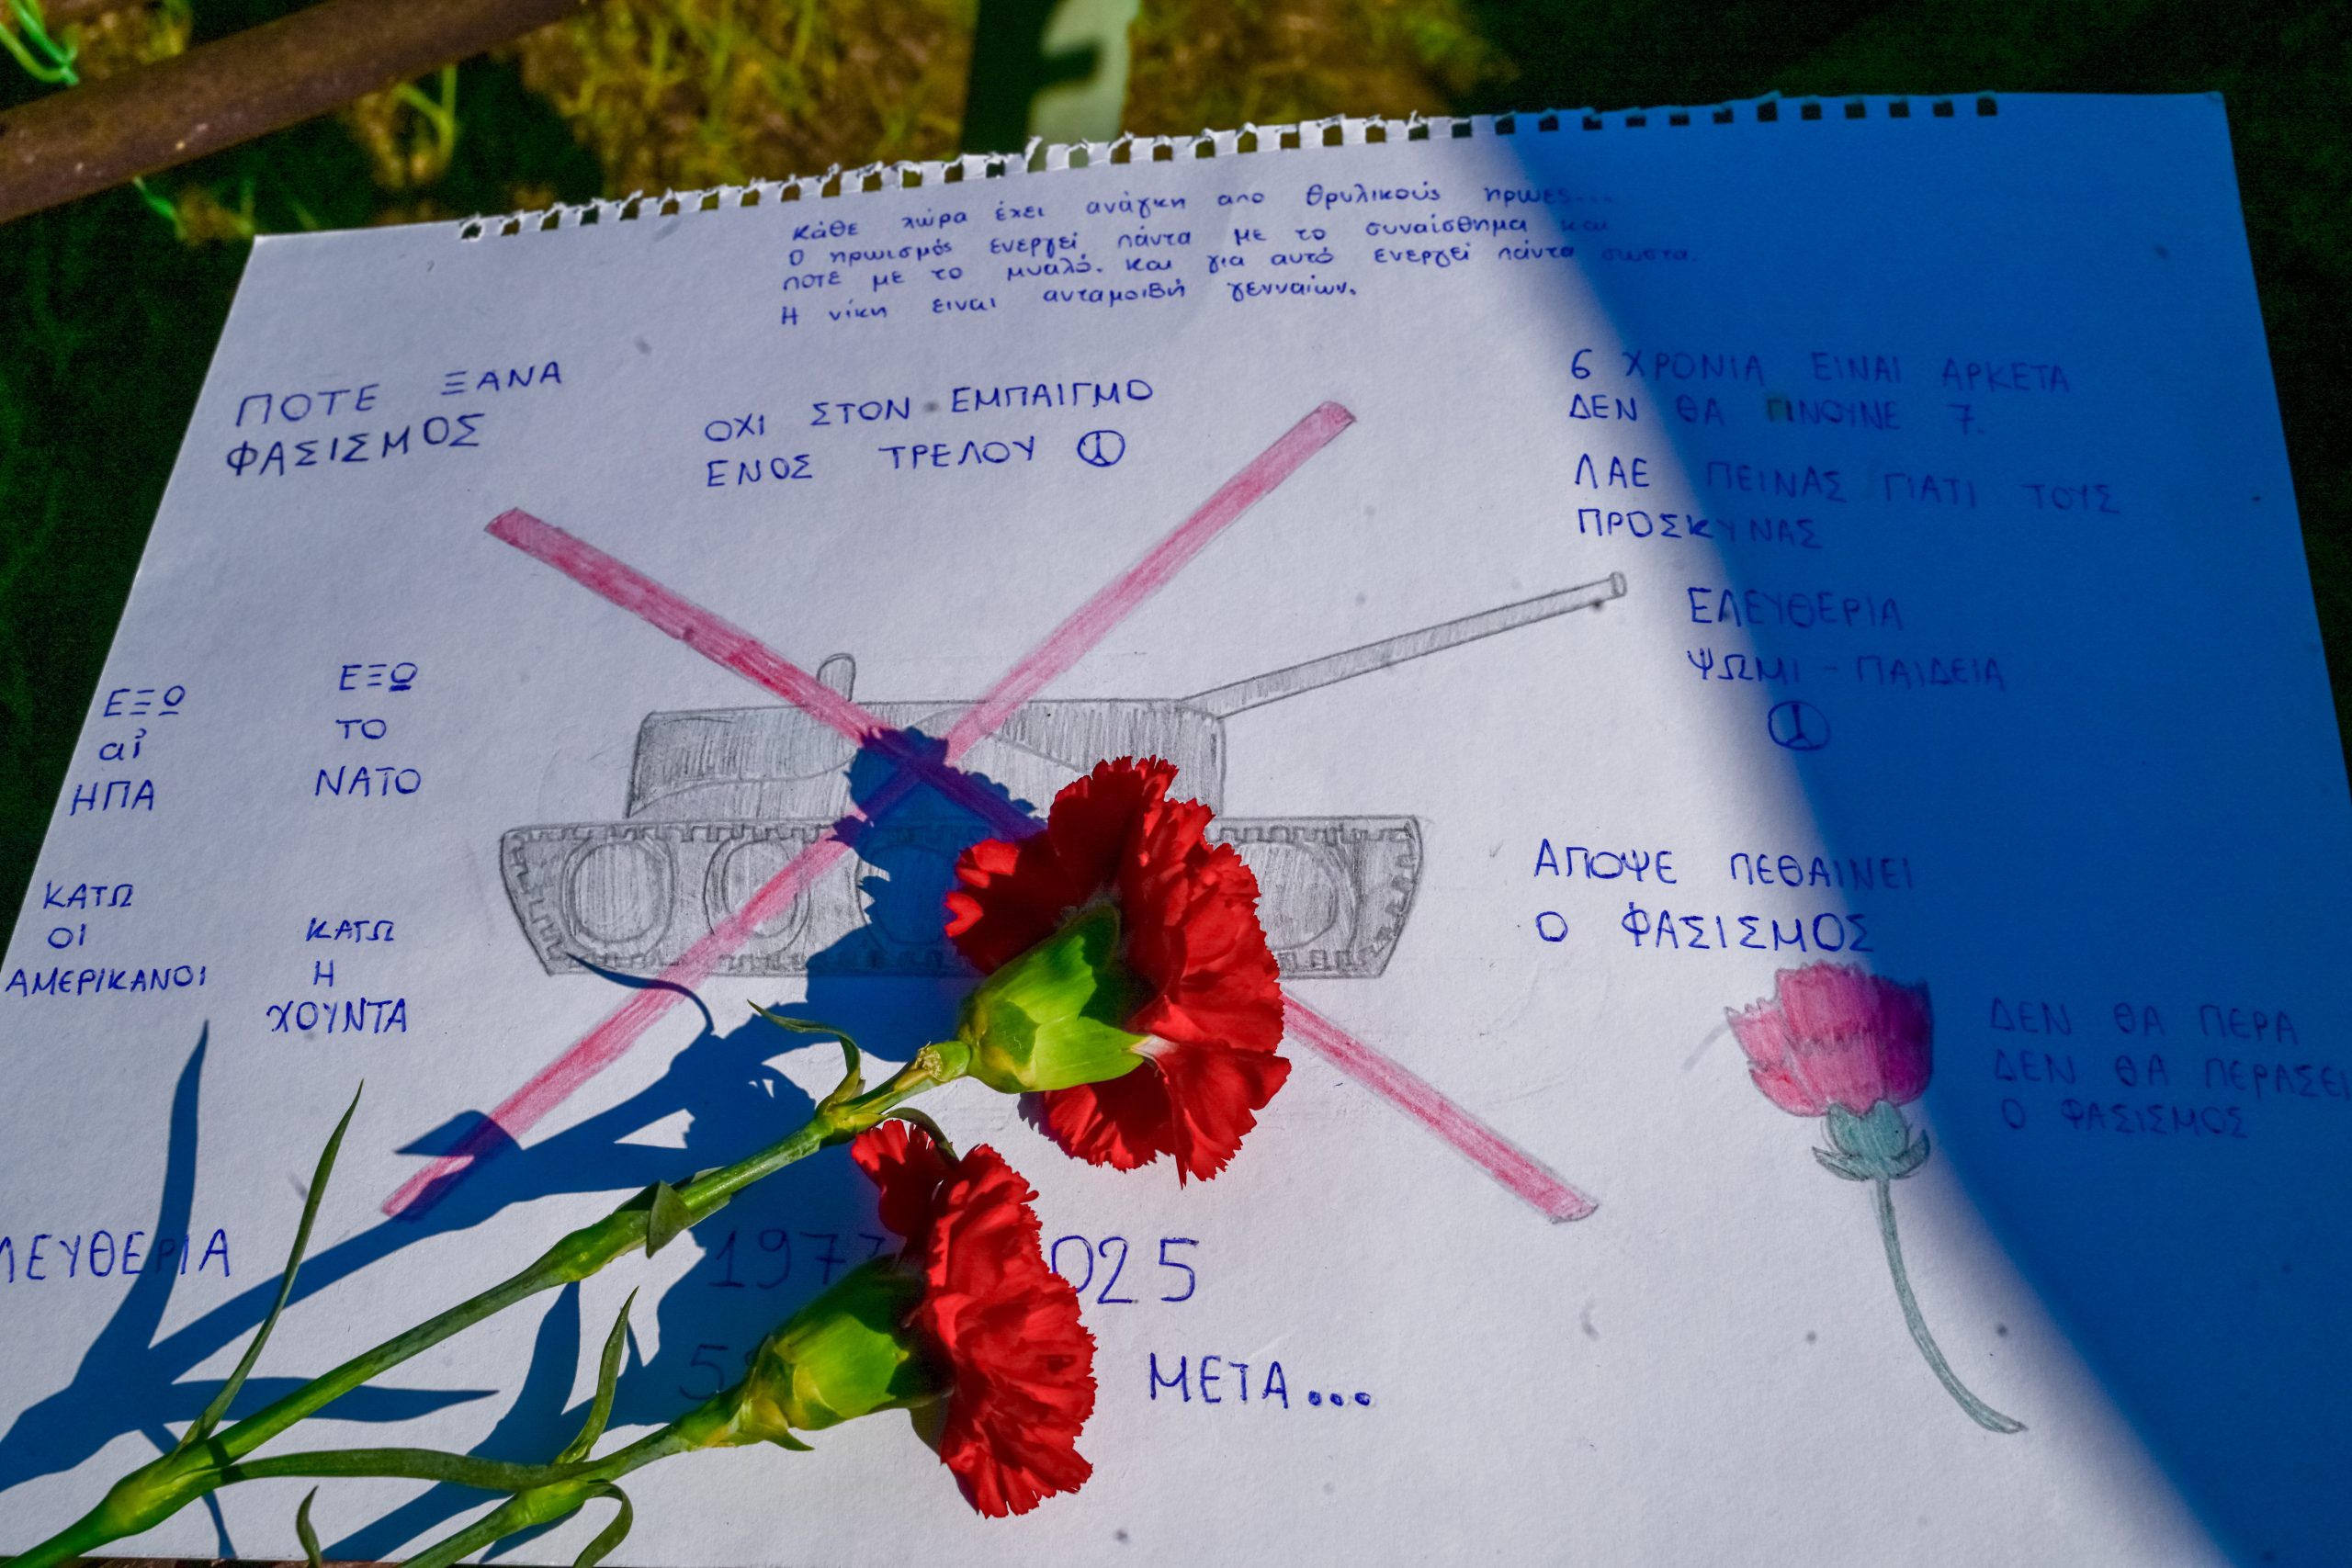 κάθε χώρα έχει ανάγκη απο θρυλικούς ηρωες...
Ο ηρωισμός ενεργεί πάντα με το συναίσθημα και
ποτε με το μυαλό. και για αυτό ενεργεί πάντα σωστα.
Η νίκη ειναι ανταμοιβή γενναίων.
ΠΟΤΕ ΞΑΝΑ
ΦΑΣΙΣΜΟΣ
ΟΧΙ ΣΤΟΝ ΕΜΠΑΙΓΜΟ
ΕΝΟΣ ΤΡΕΛΟΥ
6 ΧΡΟΝΙΑ ΕΙΝΑΙ ΑΡΚΕΤΑ
ΔΕΝ ΘΑ ΓΙΝΟΥΝΕ 7.
ΛΑΕ ΠΕΙΝΑΣ ΓΙΑΤΙ ΤΟΥΣ
ΠΡΟΣΚΥΝΑΣ
ΕΛΕΥΘΕΡΙΑ
ΨΩΜΙ - ΠΑΙΔΕΙΑ
ΕΞΩ
αἰ
ΗΠΑ
ΕΞΩ
ΤΟ
ΝΑΤΟ
ΚΑΤΩ
ΟΙ
ΑΜΕΡΙΚΑΝΟΙ
ΚΑΤΩ
Η
ΧΟΥΝΤΑ
ΑΠΟΨΕ ΠΕΘΑΙΝΕΙ
Ο ΦΑΣΙΣΜΟΣ
ΔΕΝ ΘΑ ΠΕΡΑ
ΔΕΝ ΘΑ ΠΕΡΑΣΕΙ
Ο ΦΑΣΙΣΜΟΣ
ΛΕΥΘΕΡΙΑ
1973 025
5 ΜΕΤΑ...